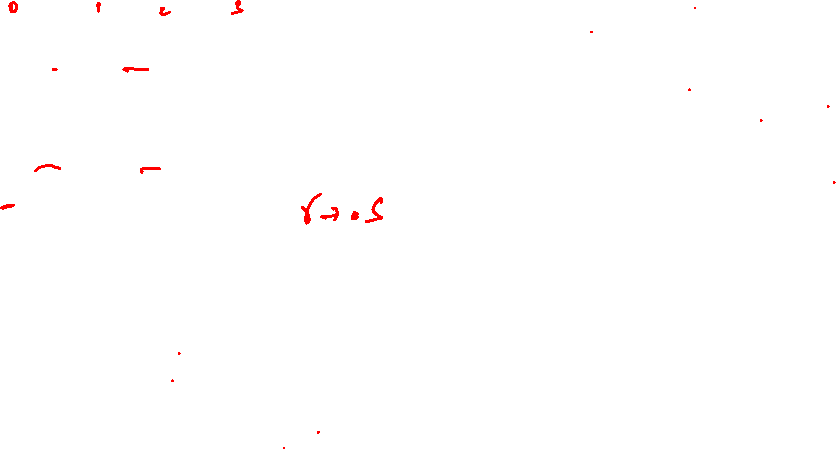 0 1 2 3
r → .5